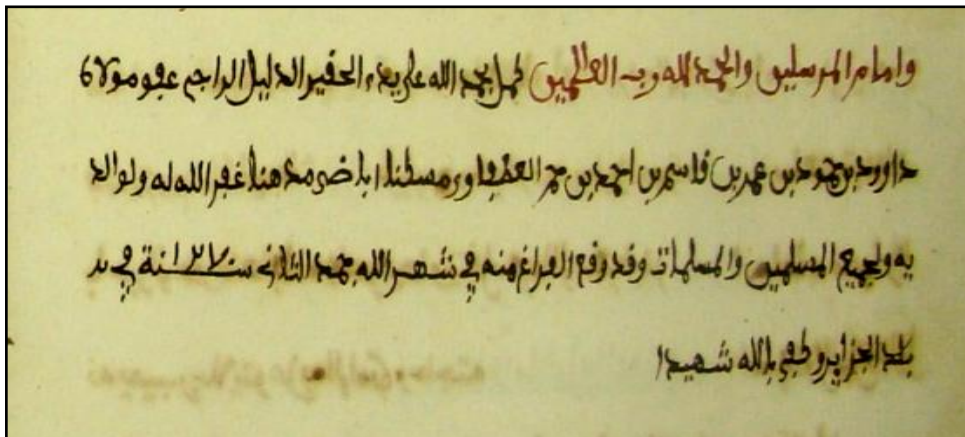 وامام المرسلين والحمد لله رب العالمين كمل بحمد الله على يد الحقير الذليل الراجي عفو مولاه
داوود بن حمود بن عمر بن قاسم بن احمد بن حمو العطفاوي مسكنا اباضي مذهبنا غفر الله له ولوالد
يه ولجميع المسلمين والمسلمات وقد وقع الفراغ منه في شهر الله جمد الثاني سنة ١٢٧٠ في
بلد الجزاير وكفى بالله شهيدا